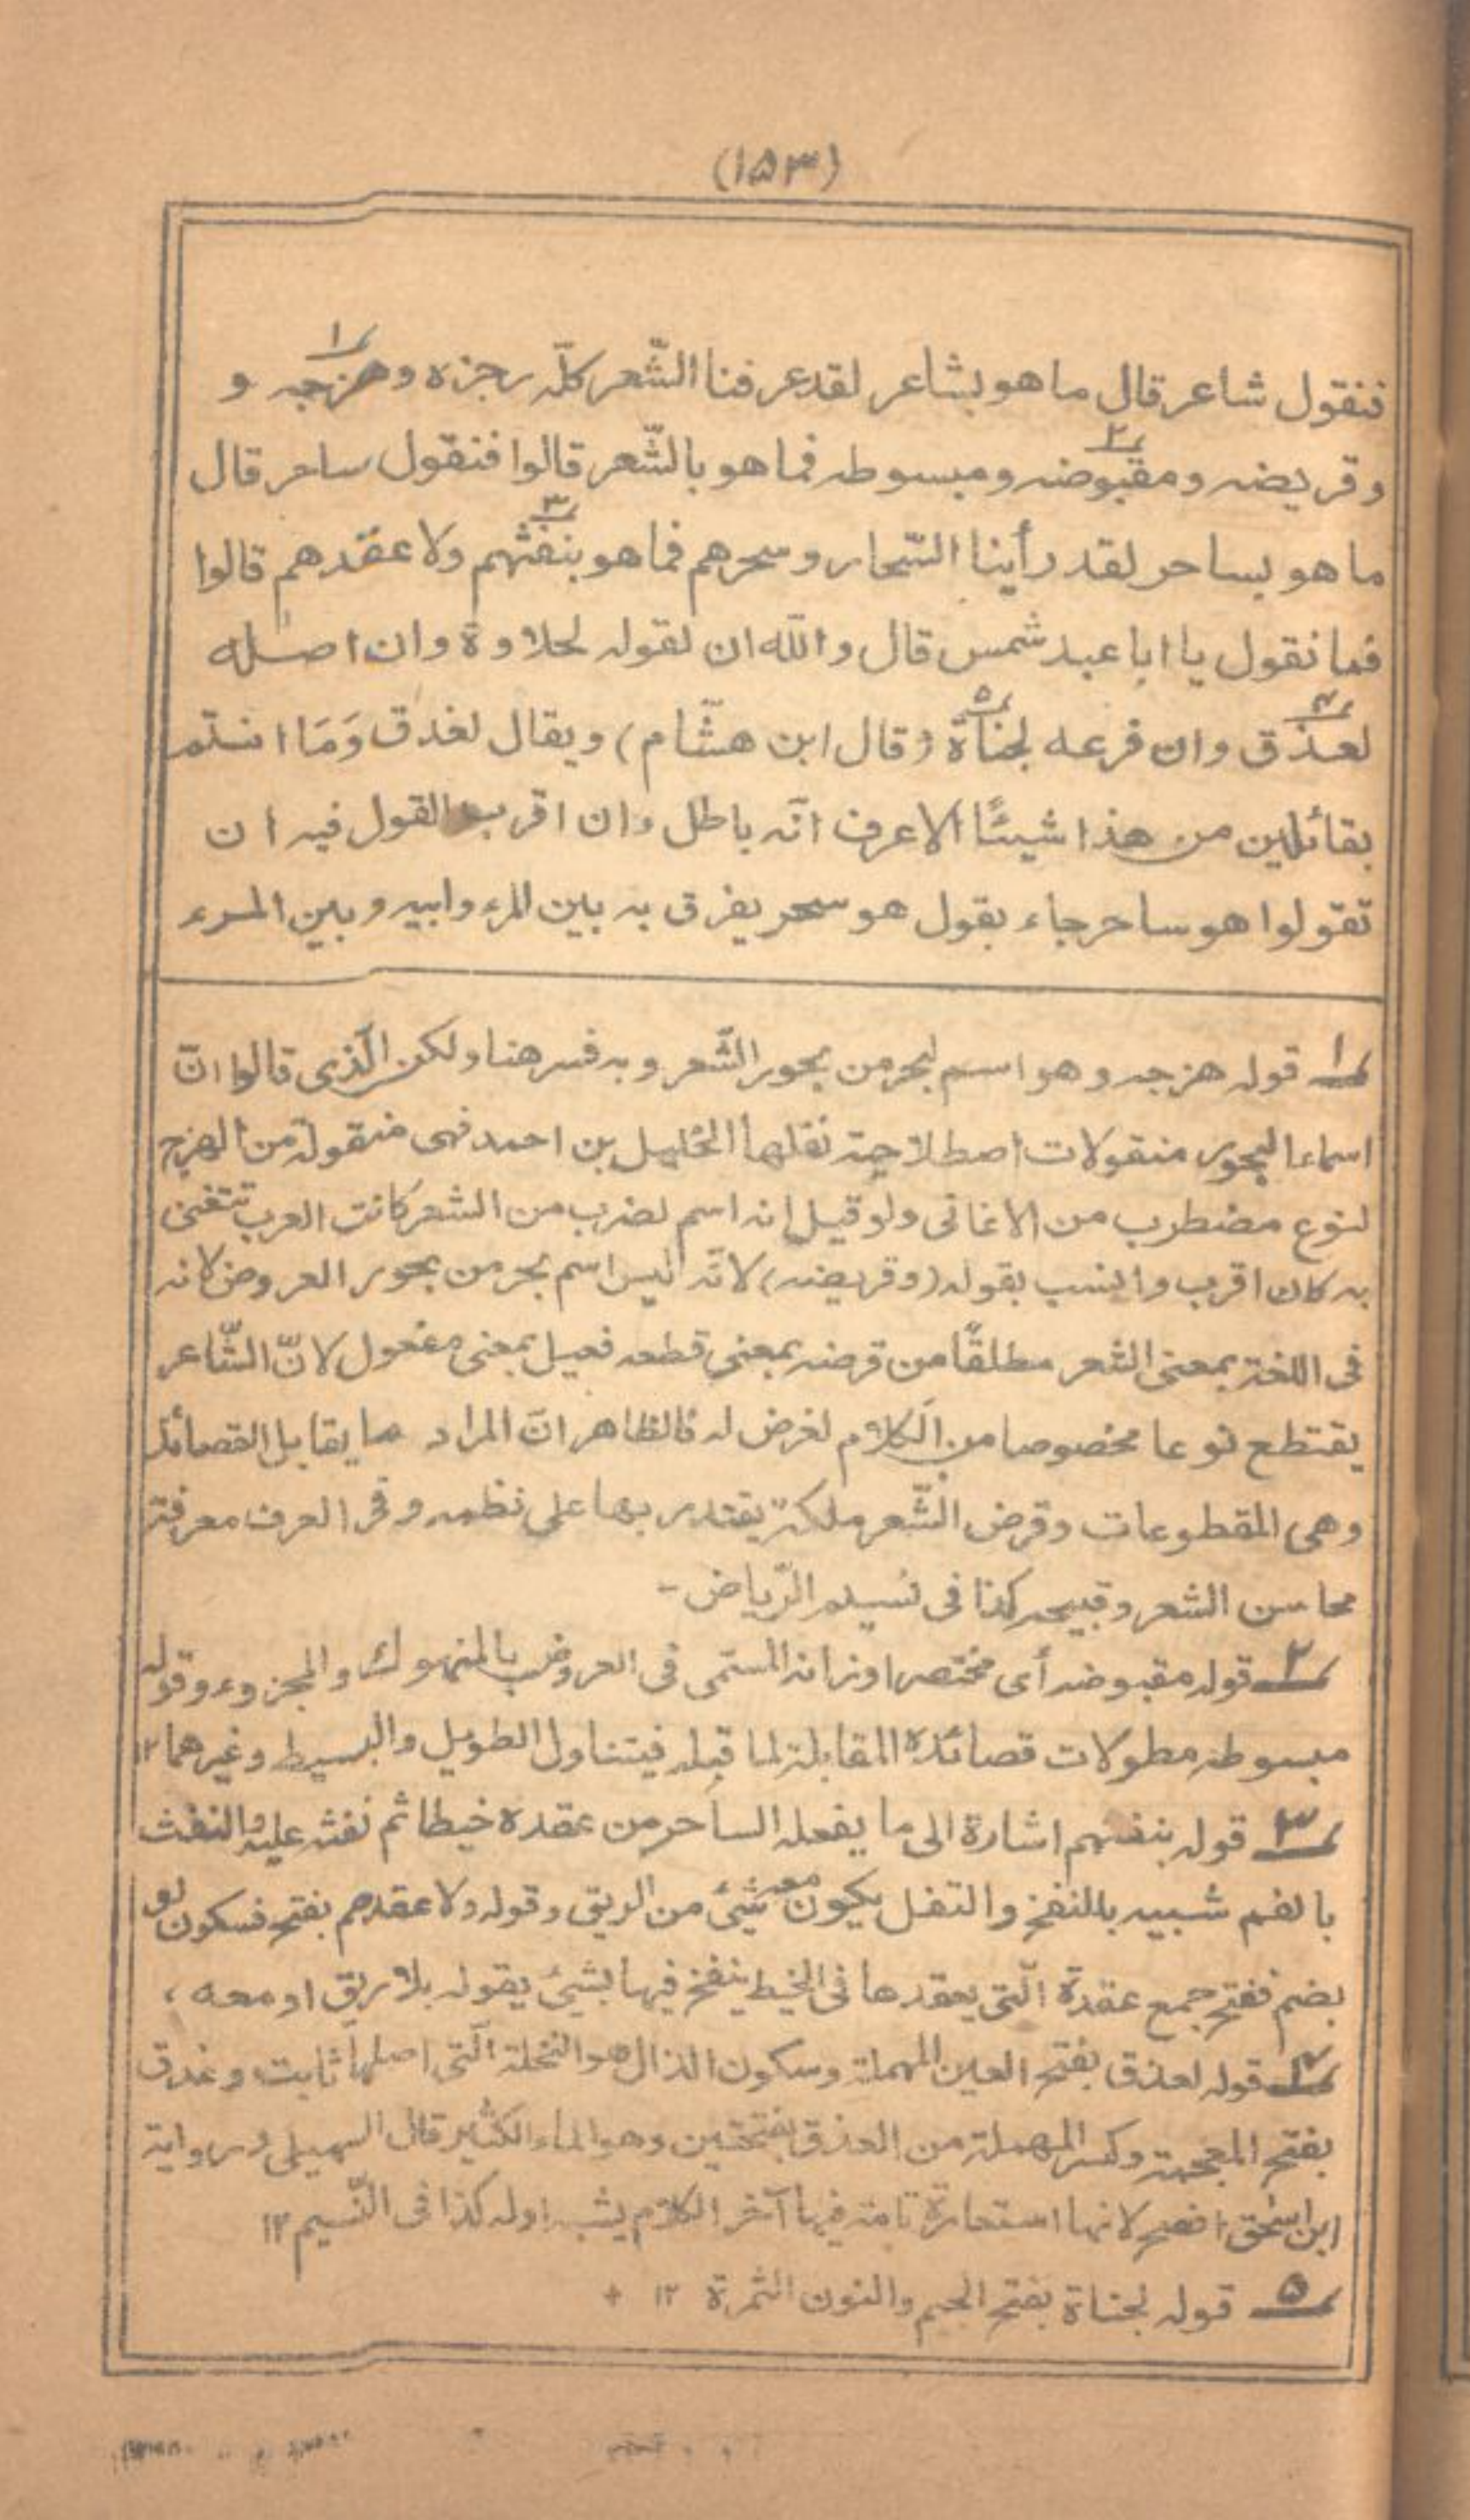 (١٥٣)
فنقول شاعر قال ما هو بشاعر لقد عرفنا الشّعر كلّه رجزه وهزجه و
١
وقريضه ومقبوضه ومبسوطه فما هو بالشّعر قالوا فنقول ساحر قال
٢
ما هو بساحر لقد رأينا السّحار وسحرهم فما هو بنفثهم ولا عقدهم قالوا
٣
فما نقول يا ابا عبد شمس قال والله ان لقوله لحلاوة وان اصله
لعذق وان فرعه لجناة (قال ابن هشّام) ويقال لغدق وَمَا انتم
٤ ٥
بقائلين من هذا شيئًا الا عرف انّه باطل وان اقرب القول فيه ان
تقولوا هو ساحر جاء بقول هو سحر يفرق به بين المرء وابيه وبين المرء
١ قوله هزجه وهو اسم لبحر من بحور الشّعر وبه فسر هنا ولكن الّذى قالوا انّ
اسماء البحور منقولات اصطلاحية نقلها الخليل بن احمد فهى منقولة من الهزج
لنوع مضطرب من الاغانى ولو قيل انه اسم لضرب من الشعر كانت العرب تتغنى
به كان اقرب وانسب بقوله (وقريضه) لانّه ليس اسم بحر من بحور العروض لانه
فى اللغة بمعنى الشعر مطلقًا من قرضه بمعنى قطعه فعيل بمعنى مفعول لانّ الشّاعر
يقتطع نوعا مخصوصا من الكلام لغرض له فالظاهر انّ المراد ما يقابل القصائد
وهى المقطوعات وقرض الشّعر ملكة يقتدر بها على نظمه وفى العرف معرفة
محاسن الشعر وقبيحه كذا فى نسيم الرّياض -
٢ قوله مقبوضه أى مختصر اوزانه المسمّى فى العروض بالمنهوك والمجزوء وقوله
مبسوطه مطولات قصائده المقابلة لما قبله فيتناول الطويل والبسيط وغيرهما ١٢
٣ قوله بنفثهم اشارة الى ما يفعله الساحر من عقده خيطا ثم نفثه عليه والنفث
بالفم شبيه بالنفخ والتفل يكون معه شئ من الريق وقوله ولا عقدهم بفتح فسكون او
بضم ففتح جمع عقدة الّتى يعقدها فى الخيط ينفخ فيها بشئ يقوله بلا ريق او معه ،
٤ قوله لعذق بفتح العين المهملة وسكون الذال هو النخلة الّتى اصلها ثابت وغدق
بفتح المعجمة وكسر المهملة من الغدق بفتحتين وهو الماء الكثير قال السهيلى ورواية
ابن اسحق افصح لانها استعارة تامة فيها آخر الكلام يشبه اوله كذا فى النّسيم ١٢
٥ قوله لجناة بفتح الجيم والنون الثمرة ١٢ +